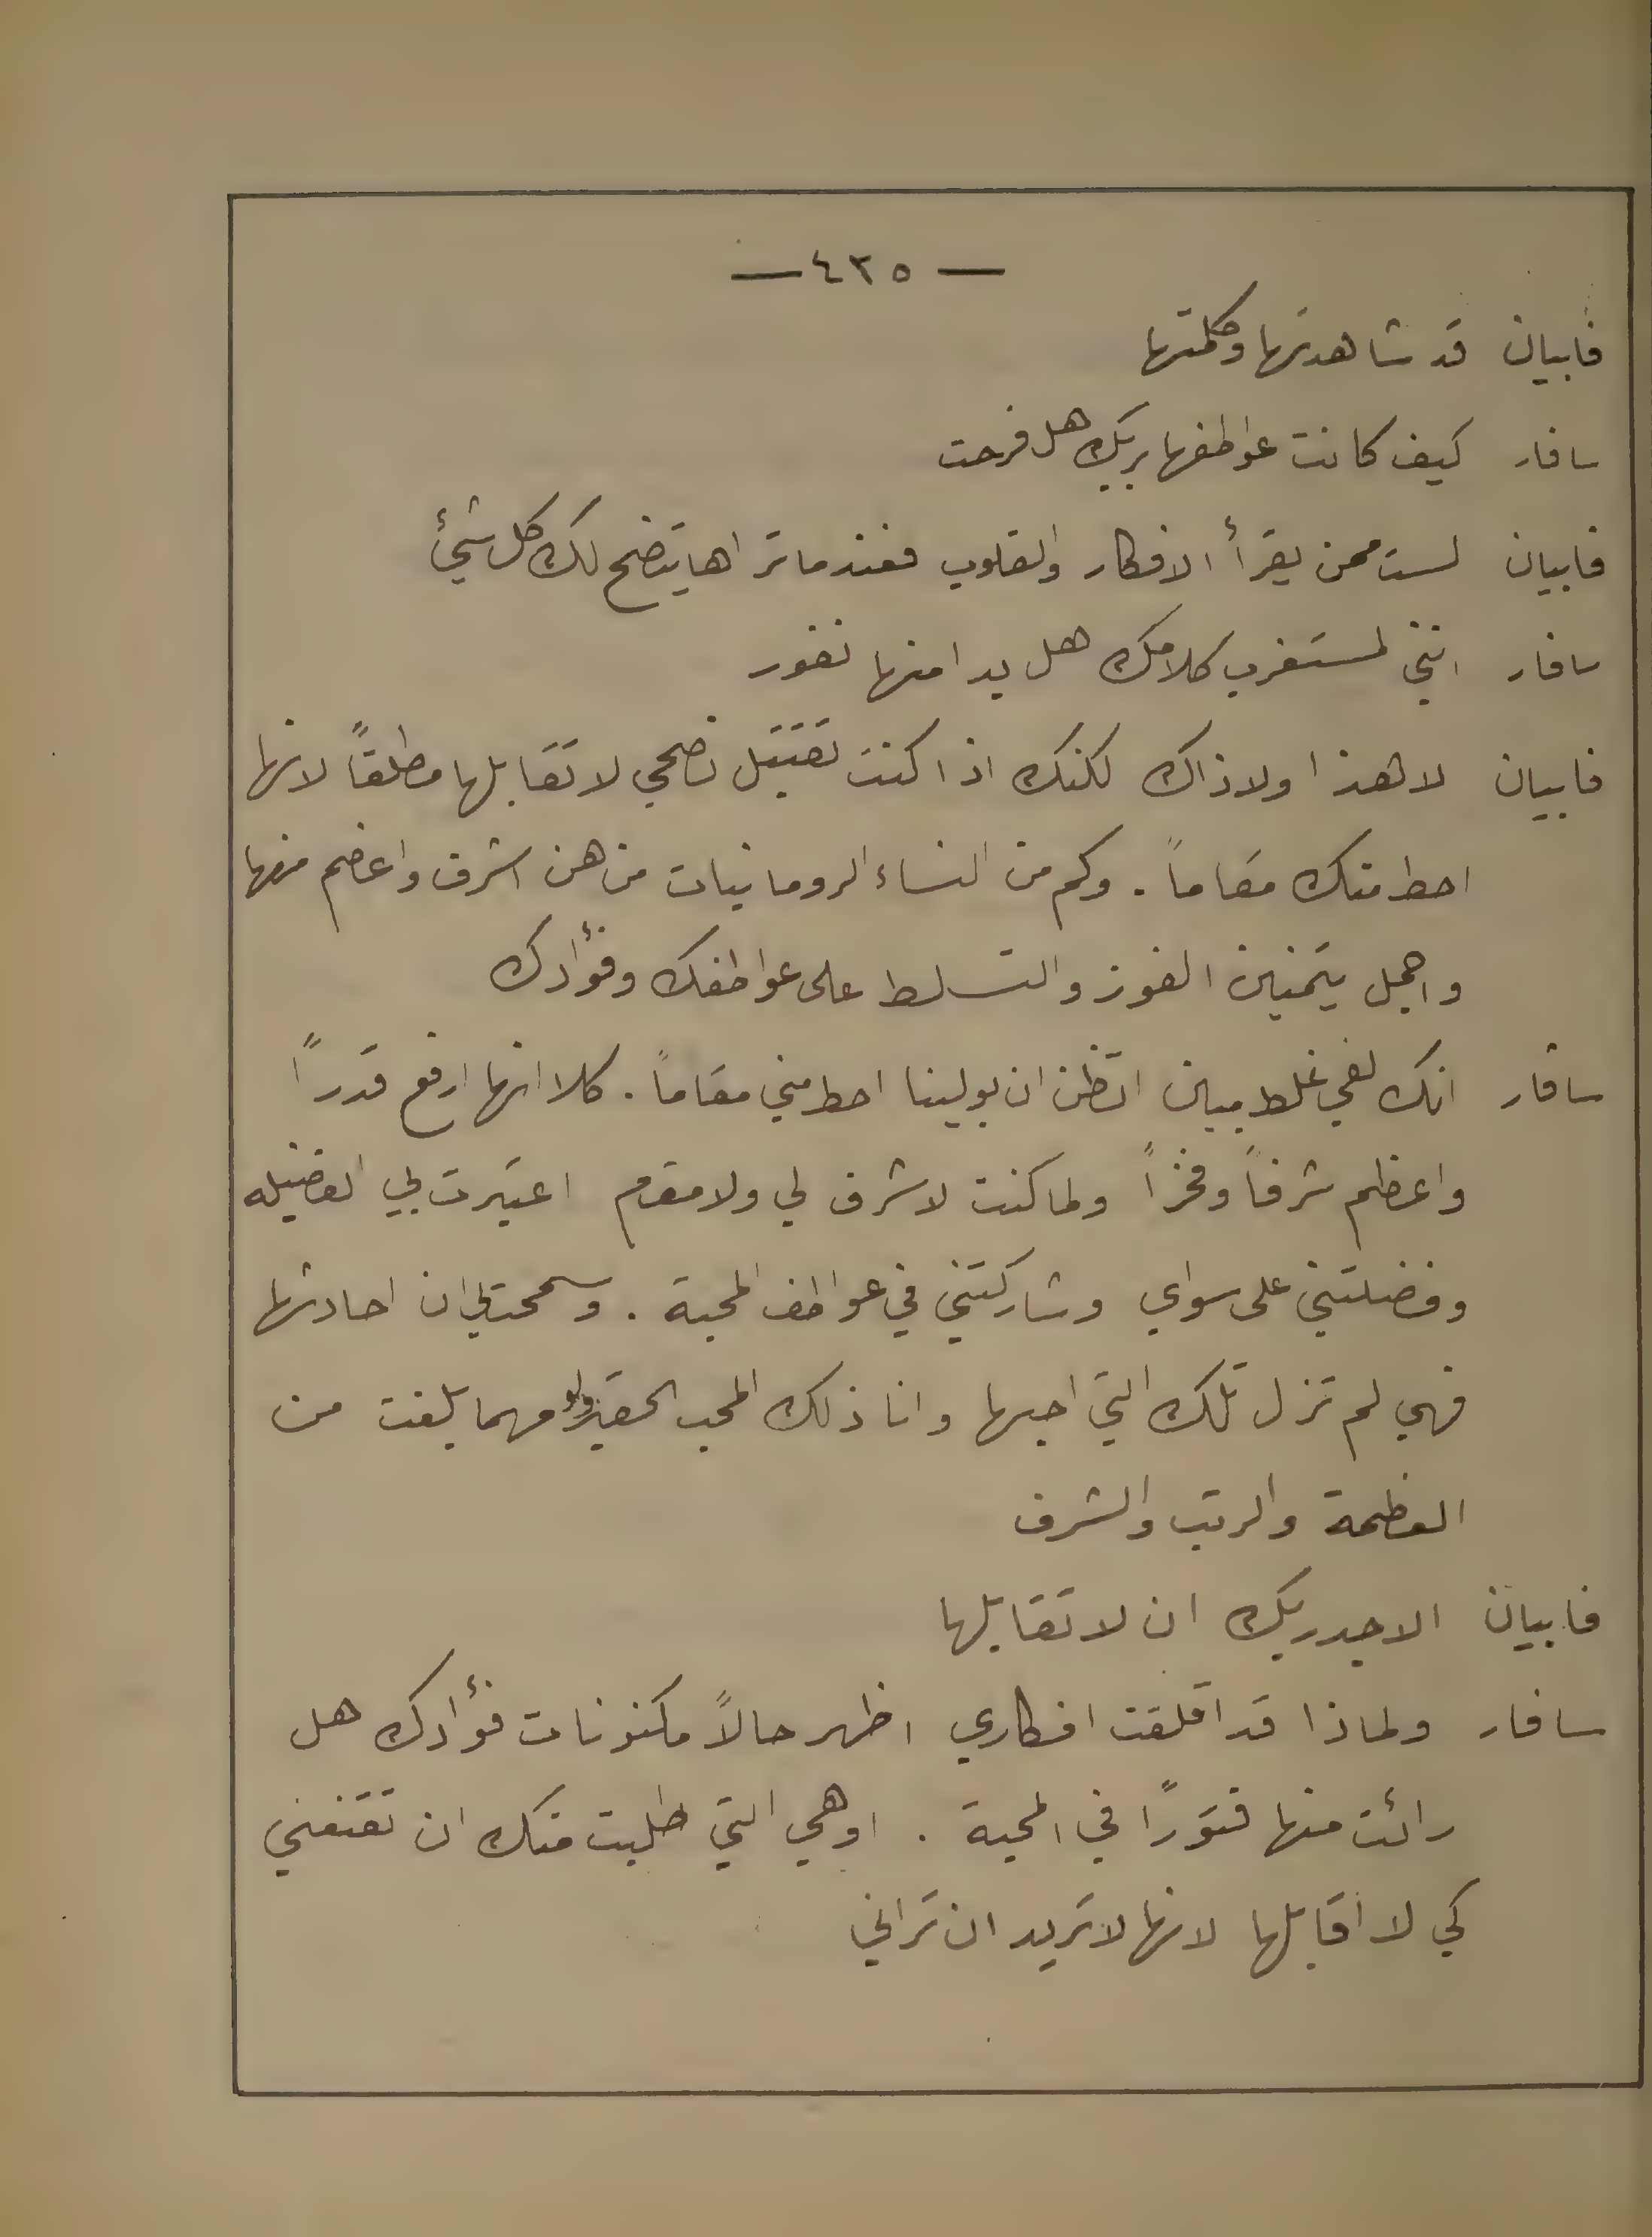 — ٤٢٥ —
فابيان قد شاهدتها وكلمتها
سافار كيف كانت عواطفها بربك هل فرحت
فابيان لست ممن يقرأ الافكار والقلوب فعندما تراها يتضح لك كل شيئ
سافار انني لمستغرب كلامك هل بدا منها نفور
فابيان لا هذا ولا ذاك لكنك اذا كنت تقتبل نصحي لا تقابلها مطلقاً لانها
احط منك مقاماً . وكم من النساء الرومانيات من هن اشرف واعضم منها
واجمل يتمنين الفوز والتسلط على عواطفك وفؤادك
سافار انك لفي غلط مبين اتظن ان بولينا احط مني مقاماً . كلا انها ارفع قدراً
واعظم شرفاً وفخراً ولما كنت لا شرف لي ولا مقام اعتبرت بي الفضيله
وفضلتني على سواي وشاركتني في عواطف المحبة . وسمحت لي ان احادثها
فهي لم تزل تلك التي احبها وانا ذلك المحب الحقير ولو مهما بلغت من
العظمة والرتب والشرف
فابيان الاجدر بك ان لا تقابلها
سافار ولماذا قد اقلقت افكاري اظهر حالاً مكنونات فؤادك هل
رائت منها فتوراً في المحبة . اوهي التي طلبت منك ان تقنعني
كي لا اقابلها لانها لا تريد ان تراني